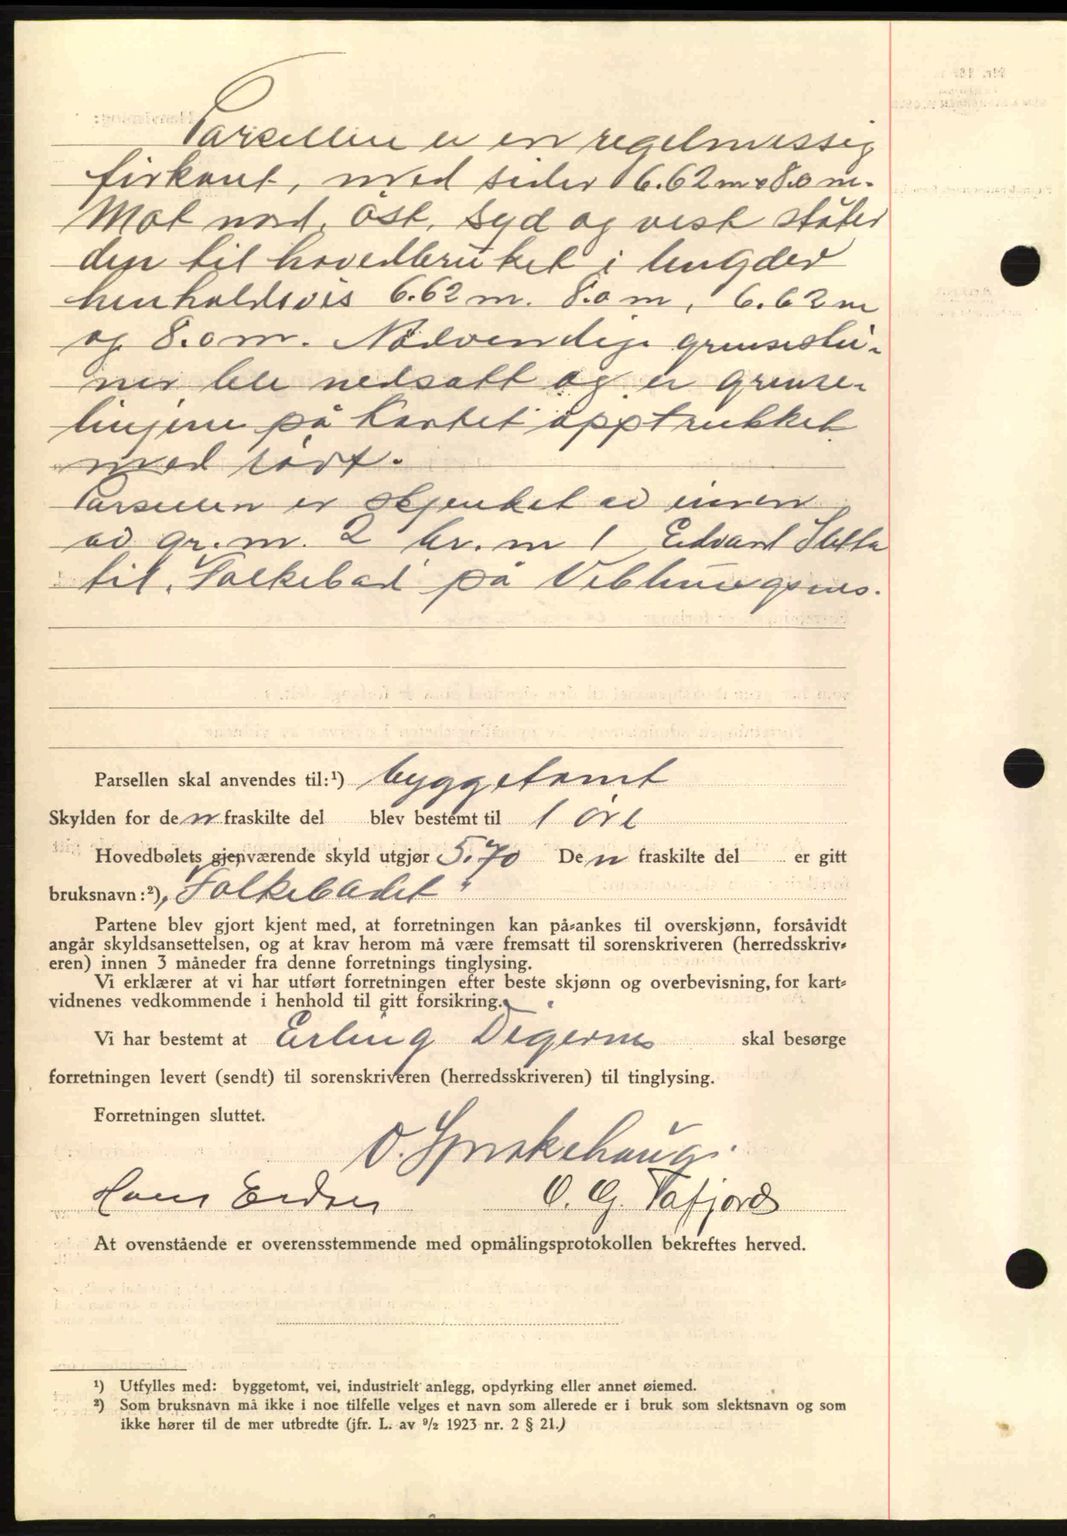 Parsellen er en regelmessig
firkant, med sider 6.62 m x 8.0 m.
Mot nord, öst, syd og vest stöter
den til hovedbruket i lengder
henholdsvis 6.62 m. 8.0 m, 6.62 m
og 8.0 m. Nödvendige grensestei-
ner ble nedsatt og er grense-
linjene på kartet opptrukket
med rödt.
Parsellen er skjenket av eieren
av gr. nr. 2 br. nr 1 Edvard
til "Folkebad" på
Parsellen skal anvendes til:¹) byggetomt
Skylden for den fraskilte del blev bestemt til 1 öre
Hovedbølets gjenværende skyld utgjør 5.70 Den fraskilte del er gitt
bruksnavn:²) "Folkebadet"
Partene blev gjort kjent med, at forretningen kan på-ankes til overskjønn, forsåvidt
angår skyldsansettelsen, og at krav herom må være fremsatt til sorenskriveren (herredsskriv-
eren) innen 3 måneder fra denne forretnings tinglysing.
Vi erklærer at vi har utført forretningen efter beste skjønn og overbevisning, for kart-
vidnenes vedkommende i henhold til gitt forsikring.
Vi har bestemt at Erling Digernes skal besørge
forretningen levert (sendt) til sorenskriveren (herredsskriveren) til tinglysing.
Forretningen sluttet.
O.
Hans O. G. Tafjord
At ovenstående er overensstemmende med opmålingsprotokollen bekreftes herved.
¹) Utfylles med: byggetomt, vei, industrielt anlegg, opdyrking eller annet øiemed.
²) Som bruksnavn må ikke i noe tilfelle velges et navn som allerede er i bruk som slektsnavn og som
ikke hører til de mer utbredte (jfr. L. av 9/2 1923 nr. 2 § 21.)